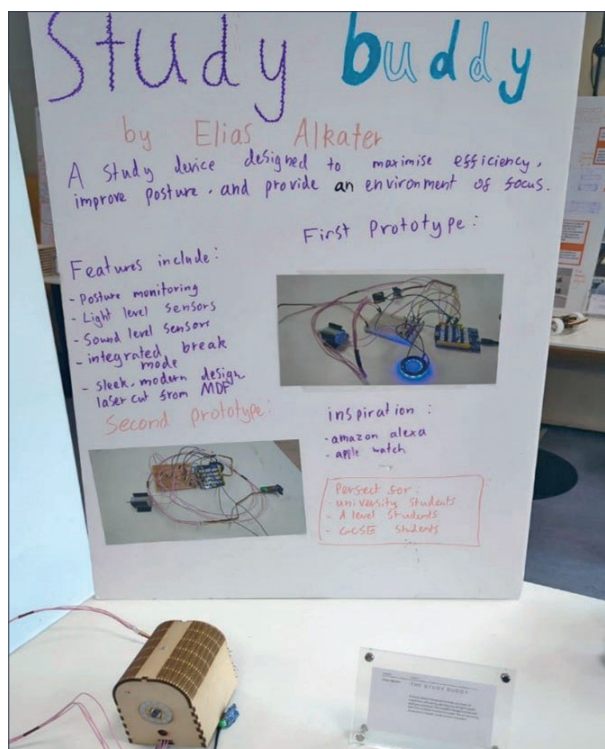 Study buddy
by Elias Alkater
A study device designed to maximise efficiency,
improve posture, and provide an environment of focus.
Features include:
- Posture monitoring
- Light level sensors
- Sound level sensors
- integrated break
mode
- sleek, modern design
laser cut from MDF
First Prototype:
Second prototype:
inspiration:
- amazon alexa
- apple watch
Perfect for:
- university students
- A level students
- GCSE students
THE STUDY BUDDY